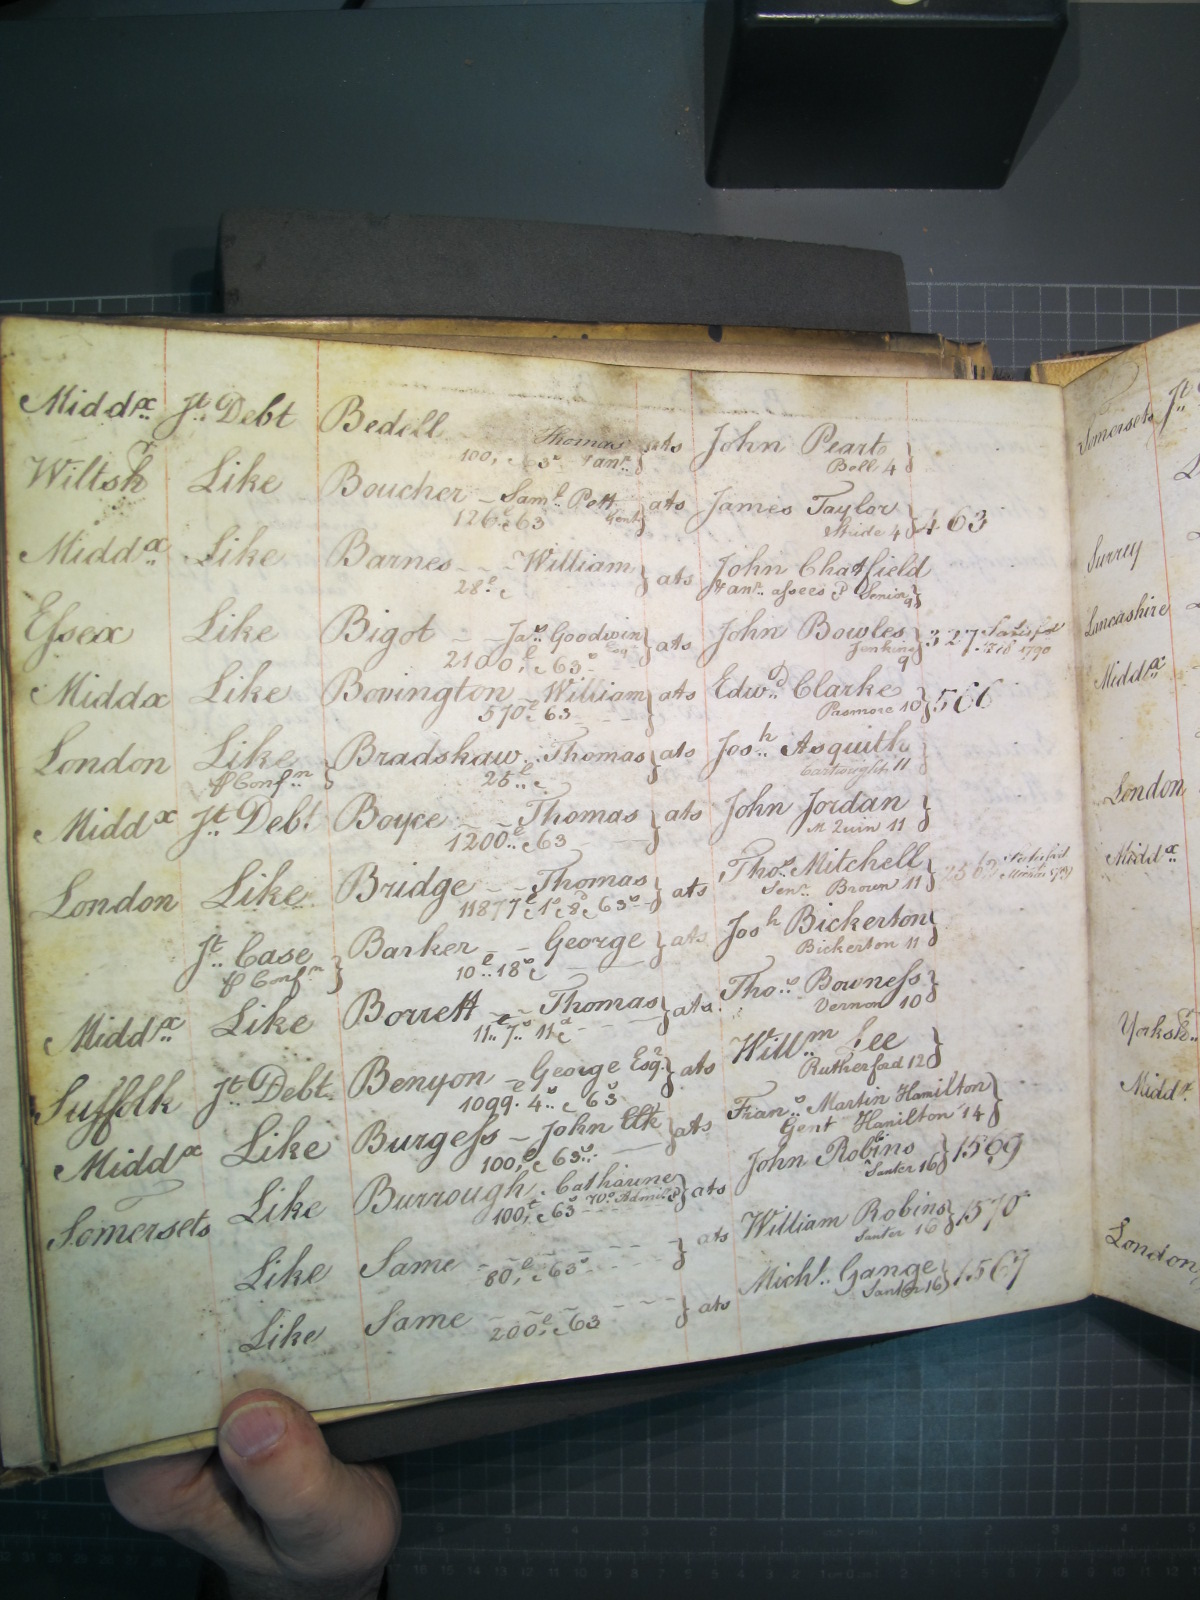 Middx Jt Debt Bedell Thomas ats John Peart
100, 63s 1 anr. Bell 4
Wiltsh Like Boucher - Saml. Pett ats James Taylor
126 63 Gent Stride 4 463
Middx Like Barnes - - William ats John Chatfield
28 & anr. assees Senior 9
Essex Like Bigot - - Jas. Goodwin ats John Bowles 327 Satisfd
2100, 63s Esqr Jenkins 9 Feb 1790
Middx Like Bovington - William ats Edwd. Clarke
570 63 Pasmore 10 566
London Like Bradshaw Thomas ats Josh. Asquith
P Confn 25 Cartwright 11
Middx Jt. Debt Boyce - - Thomas ats John Jordan
1200 63 Mc Quin 11
London Like Bridge - - Thomas ats Thos. Mitchell
11877 1s 8d 63s Senr. Brown 11
Jt. Case Barker - - George ats Josh Bickerton
P Confn 10 18s Bickerton 11
Middx Like Borrett - Thomas ats Thos. Bowness
11 7s 11d Vernon 10
Suffolk Jt Debt Benyon - George Esqr. ats Willm Lee
1099 4 63 Rutherford 12
Middx Like Burgess - John Clk ats Frans. Martin Hamilton
100, 63s Gent Hamilton 14
Somersets Like Burrough Catharine ats John Robins 1509
100, 63 Santer 16
Like Same ats William Robins 1570
80, 63s Santer 16
Like Same ats Michl. Gange
200, 63 Santer 16
Somersets Jt
Surrey
Lancashire
Middx
London
Middx
Yorksh
Middx
London